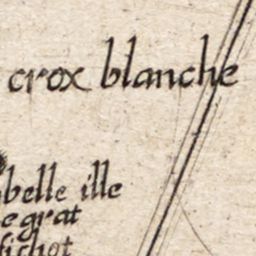 crox blanche
belle ille
egrat
fichot